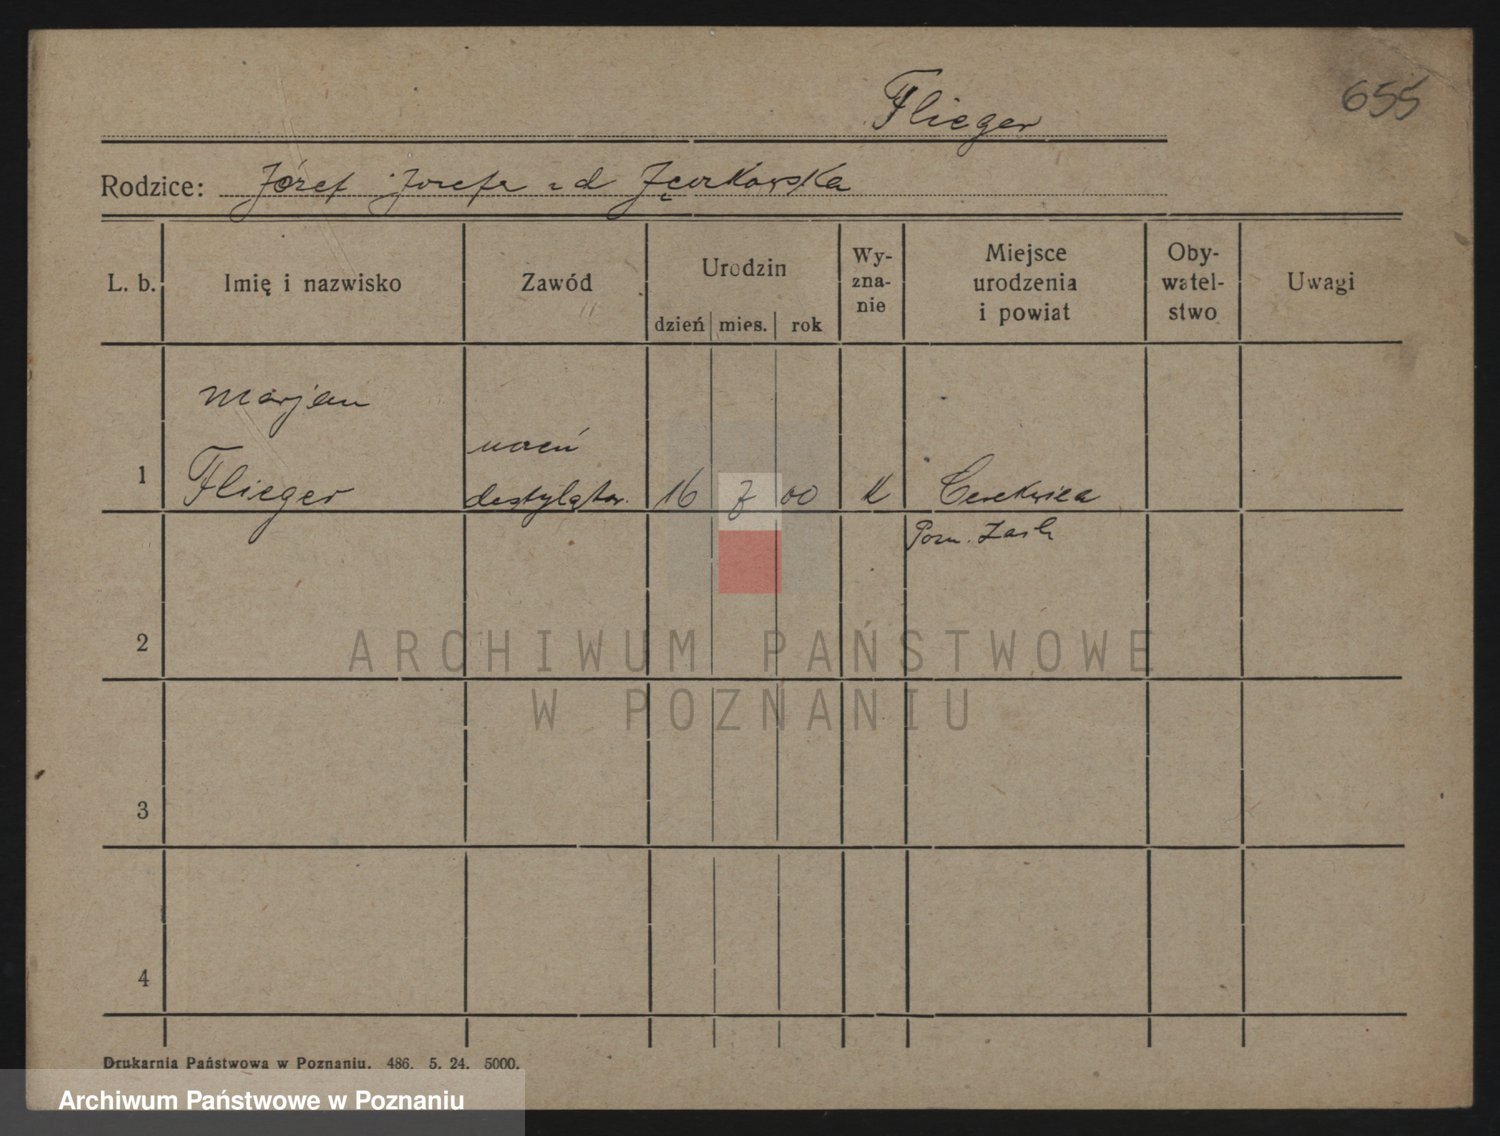 Flieger
655
Rodzice: Józef Jozefa z d
L. b. Imię i nazwisko Zawód Urodzin dzień mies. rok Wy-zna-nie Miejsce urodzenia i powiat Oby-watel-stwo Uwagi
Marjan
uczeń
1 Flieger destylator. 16 7 00 K Cerekwica
Pozn. Zach
2
ARCHIWUM PAŃSTWOWE
W POZNANIU
3
4
Drukarnia Państwowa w Poznaniu. 486. 5. 24. 5000.
Archiwum Państwowe w Poznaniu